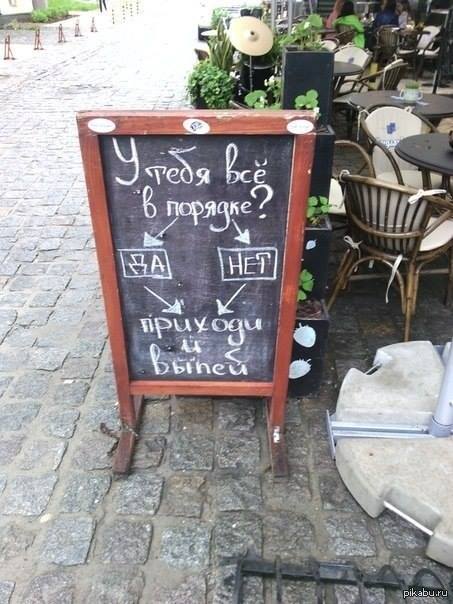 У тебя всё
в порядке?
ДА НЕТ
приходи
и
выпей
pikabu.ru